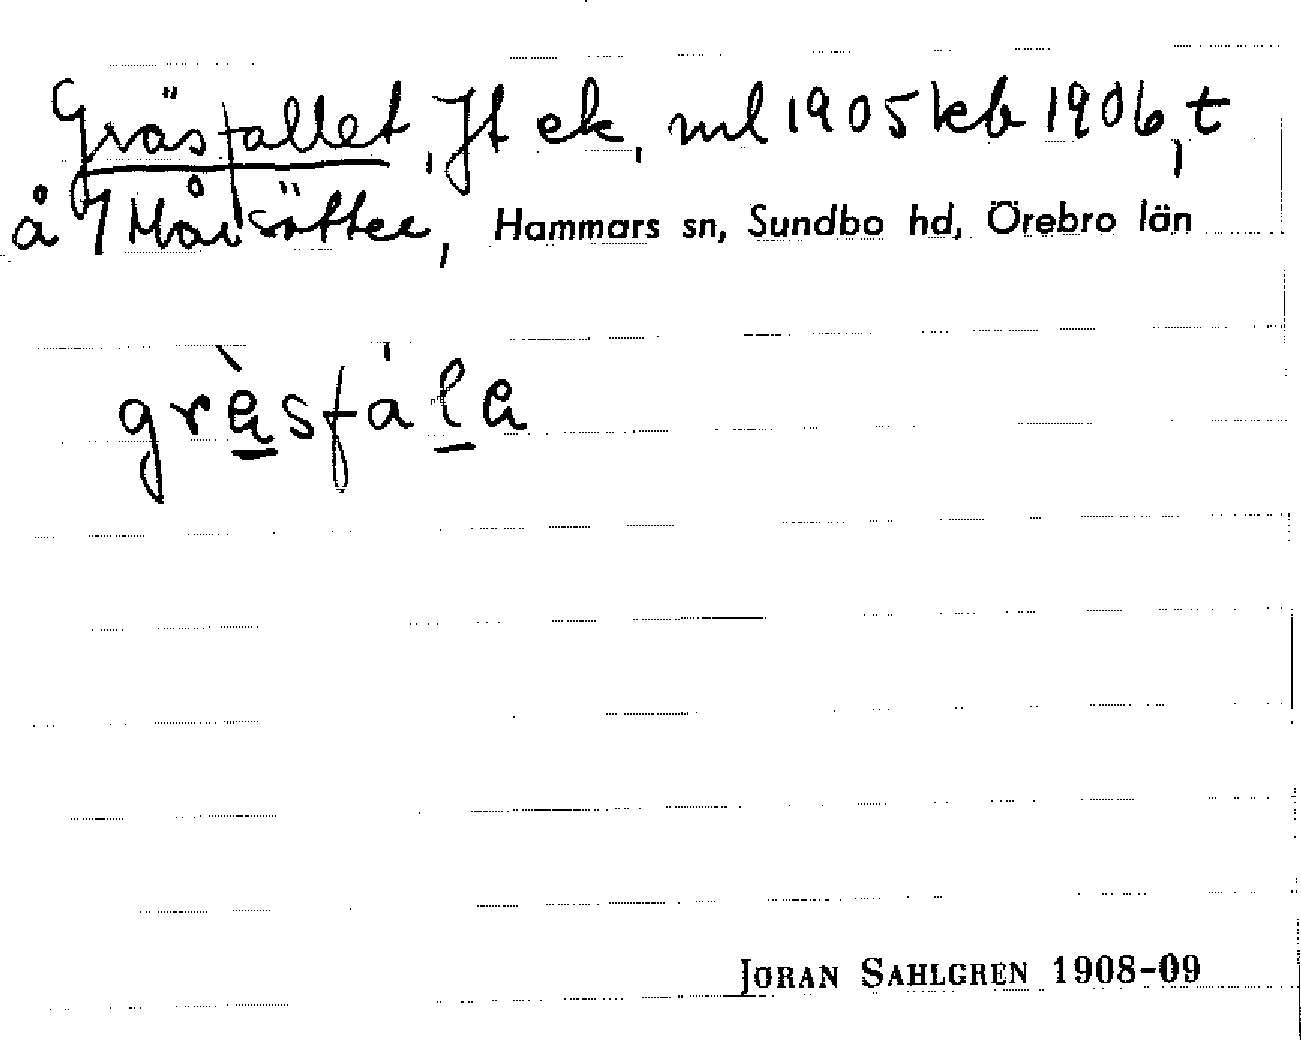 Gräsfallet, Jt ek, ml 1905 kb 1906, t
å Mårsätter, Hammars sn, Sundbo hd, Örebro län
gràsfála
JÖRAN SAHLGREN 1908-09